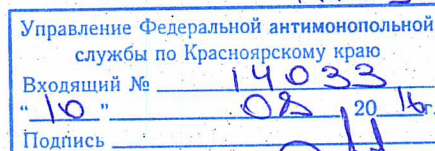 Управление Федеральной антимонопольной
службы по Красноярскому краю
Входящий № 14033
"10" 08 2016г.
Подпись